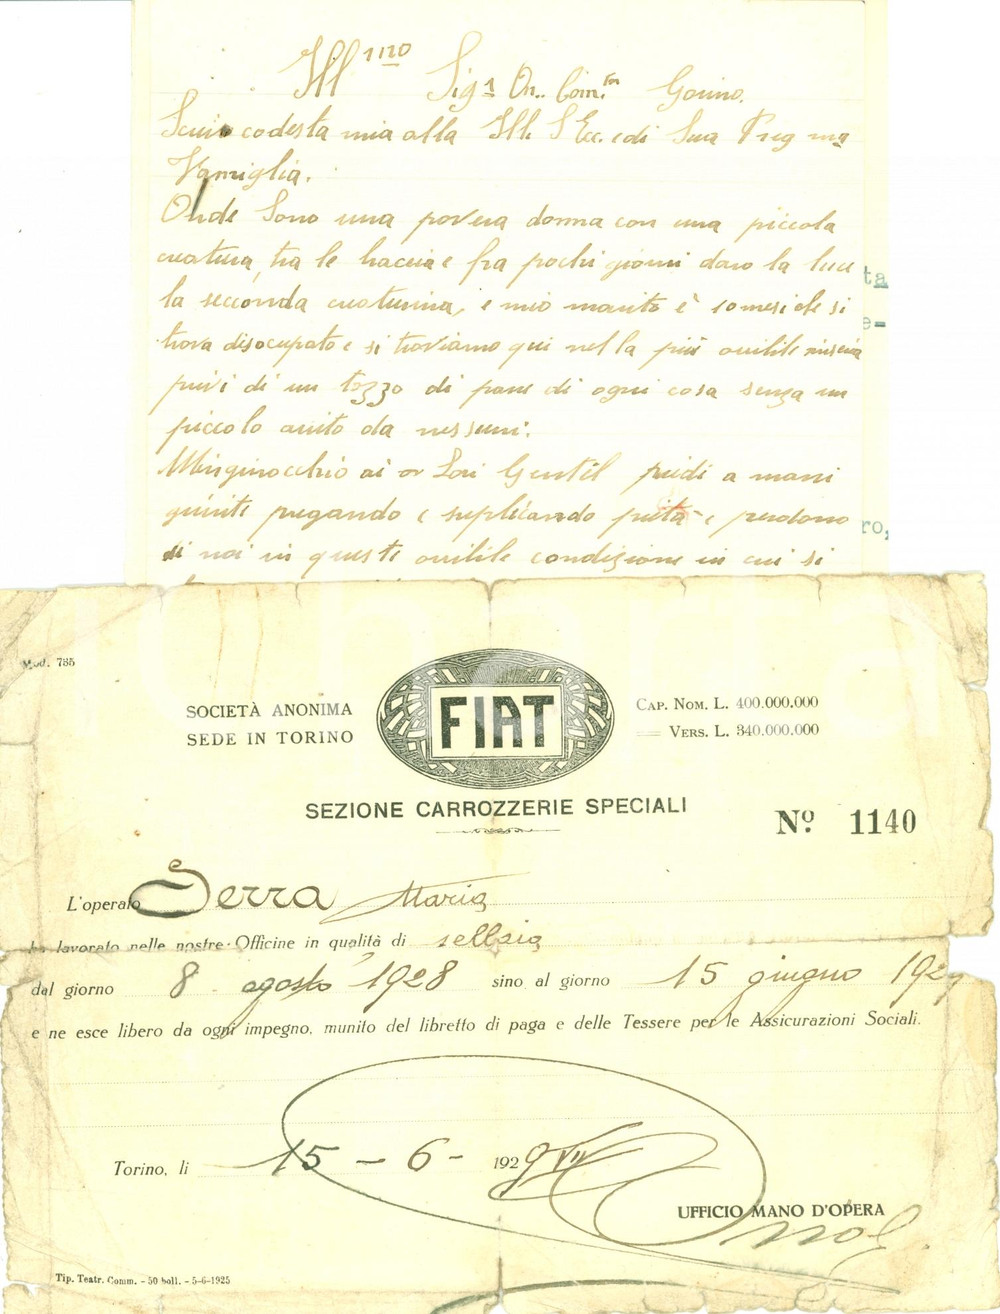 Ill mo Sig r On. Com. re Gorino.
Scrivo codesta mia alla Ill. S Ecc. e di Sua Preg ma
Famiglia.
Onde Sono una povera donna con una piccola
creatura, tra le braccia e fra pochi giorni daro la luce
la seconda creaturina, e mio marito è 10 mesi che si
trova disocupato e si troviamo qui nella più umile miseria
privi di un tozzo di pane di ogni cosa senza un
piccolo aiuto da nessuni.
M'inginocchio ai Lori Gentil piedi a mani
giunte pregando e suplicando pietà e perdono
di noi in queste umile condizione in cui si
ta
e-
ro,
Mod. 785
SOCIETÀ ANONIMA
SEDE IN TORINO
FIAT
CAP. NOM. L. 400.000.000
VERS. L. 340.000.000
SEZIONE CARROZZERIE SPECIALI
Nº 1140
L'operaio Serra Maria
ha lavorato nelle nostre Officine in qualità di sellaia
dal giorno 8 agosto 1928 sino al giorno 15 giugno 1929
e ne esce libero da ogni impegno, munito del libretto di paga e delle Tessere per le Assicurazioni Sociali.
Torino, li 15 - 6 - 1929 VII
UFFICIO MANO D'OPERA
Tip. Teatr. Comm. - 50 boll. - 5-6-1925